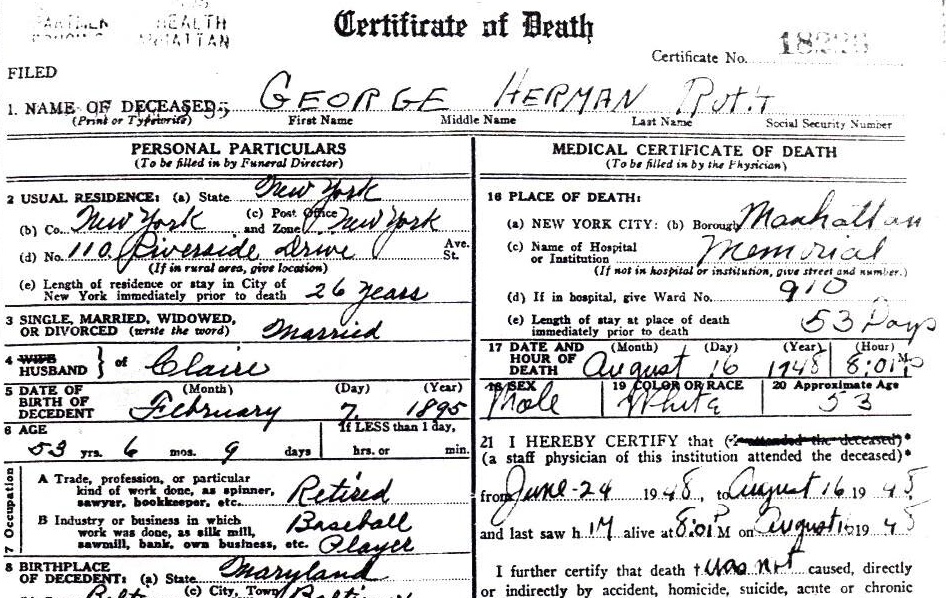 HEALTH
MANHATTAN
Certificate of Death
Certificate No. 18226
FILED
1. NAME OF DECEASED GEORGE HERMAN RUTH
(Print or Typewrite) First Name Middle Name Last Name Social Security Number
PERSONAL PARTICULARS
(To be filled in by Funeral Director)
2 USUAL RESIDENCE: (a) State New York
(b) Co. New York (c) Post Office and Zone New York
(d) No. 110 Riverside Drive Ave. St.
(If in rural area, give location)
(e) Length of residence or stay in City of
New York immediately prior to death 26 years
3 SINGLE, MARRIED, WIDOWED,
OR DIVORCED (write the word) Married
4 WIFE
HUSBAND } of Claire
5 DATE OF BIRTH OF DECEDENT (Month) (Day) (Year)
February 7, 1895
6 AGE If LESS than 1 day,
53 yrs. 6 mos. 9 days hrs. or min.
7 Occupation
A Trade, profession, or particular
kind of work done, as spinner,
sawyer, bookkeeper, etc. Retired
B Industry or business in which
work was done, as silk mill,
sawmill, bank, own business, etc. Baseball Player
8 BIRTHPLACE
OF DECEDENT: (a) State Maryland
(c) City, Town
MEDICAL CERTIFICATE OF DEATH
(To be filled in by the Physician)
16 PLACE OF DEATH:
(a) NEW YORK CITY: (b) Borough Manhattan
(c) Name of Hospital
or Institution Memorial
(If not in hospital or institution, give street and number.)
(d) If in hospital, give Ward No. 910
(e) Length of stay at place of death
immediately prior to death 53 Days
17 DATE AND HOUR OF DEATH (Month) (Day) (Year) (Hour)
August 16 1948 8:01 P M
18 SEX 19 COLOR OR RACE 20 Approximate Age
Male White 53
21 I HEREBY CERTIFY that (I attended the deceased)*
(a staff physician of this institution attended the deceased)*
from June 24 1948, to August 16 1948
and last saw him alive at 8:01 P M on August 16 1948
I further certify that death † was not caused, directly
or indirectly by accident, homicide, suicide, acute or chronic